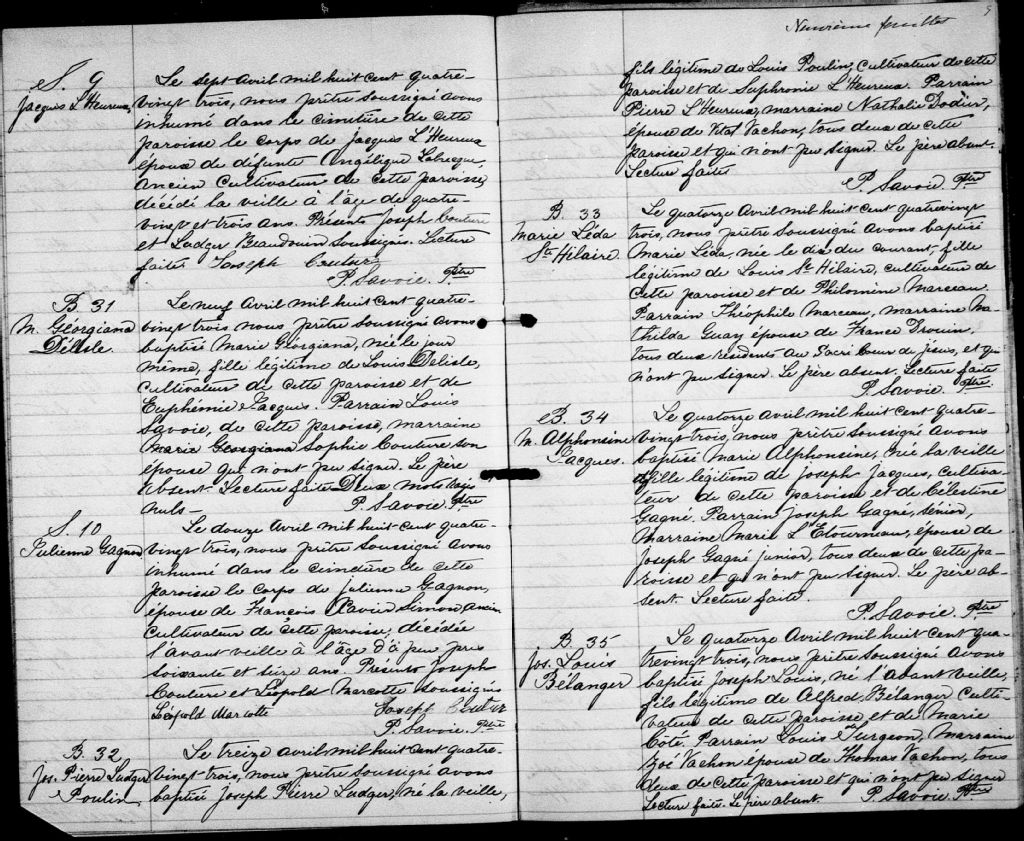 S. 9
Jacques L'Heureux
Le sept Avril mil huit cent quatre-
vingt trois, nous prêtre soussigné avons
inhumé dans le cimetière de cette
paroisse le corps de Jacques L'Heureux
époux de défunte Angélique Labrecque,
ancien cultivateur de cette paroisse,
décédé la veille à l'âge de quatre-
vingt et trois ans. Présents Joseph Couture
et Ludger Beaudouin Soussignés. Lecture
faite Joseph Couture
P. Savoie. Ptre
B 31
M. Georgiana
Délisle.
Le neuf Avril mil huit cent quatre-
vingt trois nous prêtre soussigné avons
baptisé Marie Georgiana, née le jour
même, fille légitime de Louis Delisle,
cultivateur de cette paroisse et de
Euphémie Jacques. Parrain Louis
Savoie, de cette paroisse, marraine
Marie Georgiana Sophie Couture son
épouse qui n'ont pu signer. Le père
absent. Lecture faite Deux mots rayés
nuls —
P. Savoie Ptre
S. 10
Julienne Gagnon
Le douze Avril mil huit cent quatre-
vingt trois, nous prêtre soussigné avons
inhumé dans le cimetière de cette
paroisse le corps de Julienne Gagnon,
épouse de François Xavier Simon, ancien
cultivateur de cette paroisse, décédée
l'avant veille à l'âge d'à peu près
soixante et seize ans. Présents Joseph
Couture et Léopold Marcotte soussignés
Léopold Marcotte Joseph Couture
P. Savoie. Ptre
B. 32
Jos. Pierre Ludger
Poulin
Le treize avril mil huit cent quatre-
vingt trois, nous prêtre soussigné avons
baptisé Joseph Pierre Ludger, né la veille,
9
Neuvième feuillet
fils légitime de Louis Poulin, cultivateur de cette
paroisse et de Suphronie L'Heureux. Parrain
Pierre L'Heureux, marraine Nathalie Dodier,
épouse de Vital Vachon, tous deux de cette
paroisse et qui n'ont pu signer. Le père absent.
Lecture faite
P. Savoie. Ptre
B. 33
Marie Léda
St Hilaire
Le quatorze Avril mil huit cent quatrevingt
trois, nous prêtre soussigné avons baptisé
Marie Léda, née le dix du courant, fille
légitime de Louis St Hilaire, cultivateur de
cette paroisse et de Philomène Marceau.
Parrain Théophile Marceau, marraine Ma-
thilda Guay épouse de France Drouin,
tous deux résidents au Sacré Coeur de Jésus, et qui
n'ont pu signer. Le père absent. Lecture faite
P. Savoie. Ptre.
B. 34
M. Alphonsine
Jacques.
Le quatorze Avril mil huit cent quatre-
vingt trois, nous prêtre soussigné avons
baptisé Marie Alphonsine, née la veille
fille légitime de Joseph Jacques, cultiva-
teur de cette paroisse et de Célestine
Gagné. Parrain Joseph Gagné, Sénior,
Marraine Marie L'Etourneau, épouse de
Joseph Gagné junior, tous deux de cette pa-
roisse et qui n'ont pu signer. Le père ab-
sent. Lecture faite.
P. Savoie. Ptre
B. 35
Jos. Louis
Bélanger
Le quatorze Avril mil huit cent qua-
trevingt trois, nous prêtre soussigné avons
baptisé Joseph Louis, né l'Avant Veille,
fils légitime de Alfred Bélanger culti-
vateur de cette paroisse, et de Marie
Côté. Parrain Louis Turgeon, Marraine
Zoé Vachon épouse de Thomas Vachon, tous
deux de cette paroisse et qui n'ont pu signer
Lecture faite. Le père absent. P. Savoie. Ptre